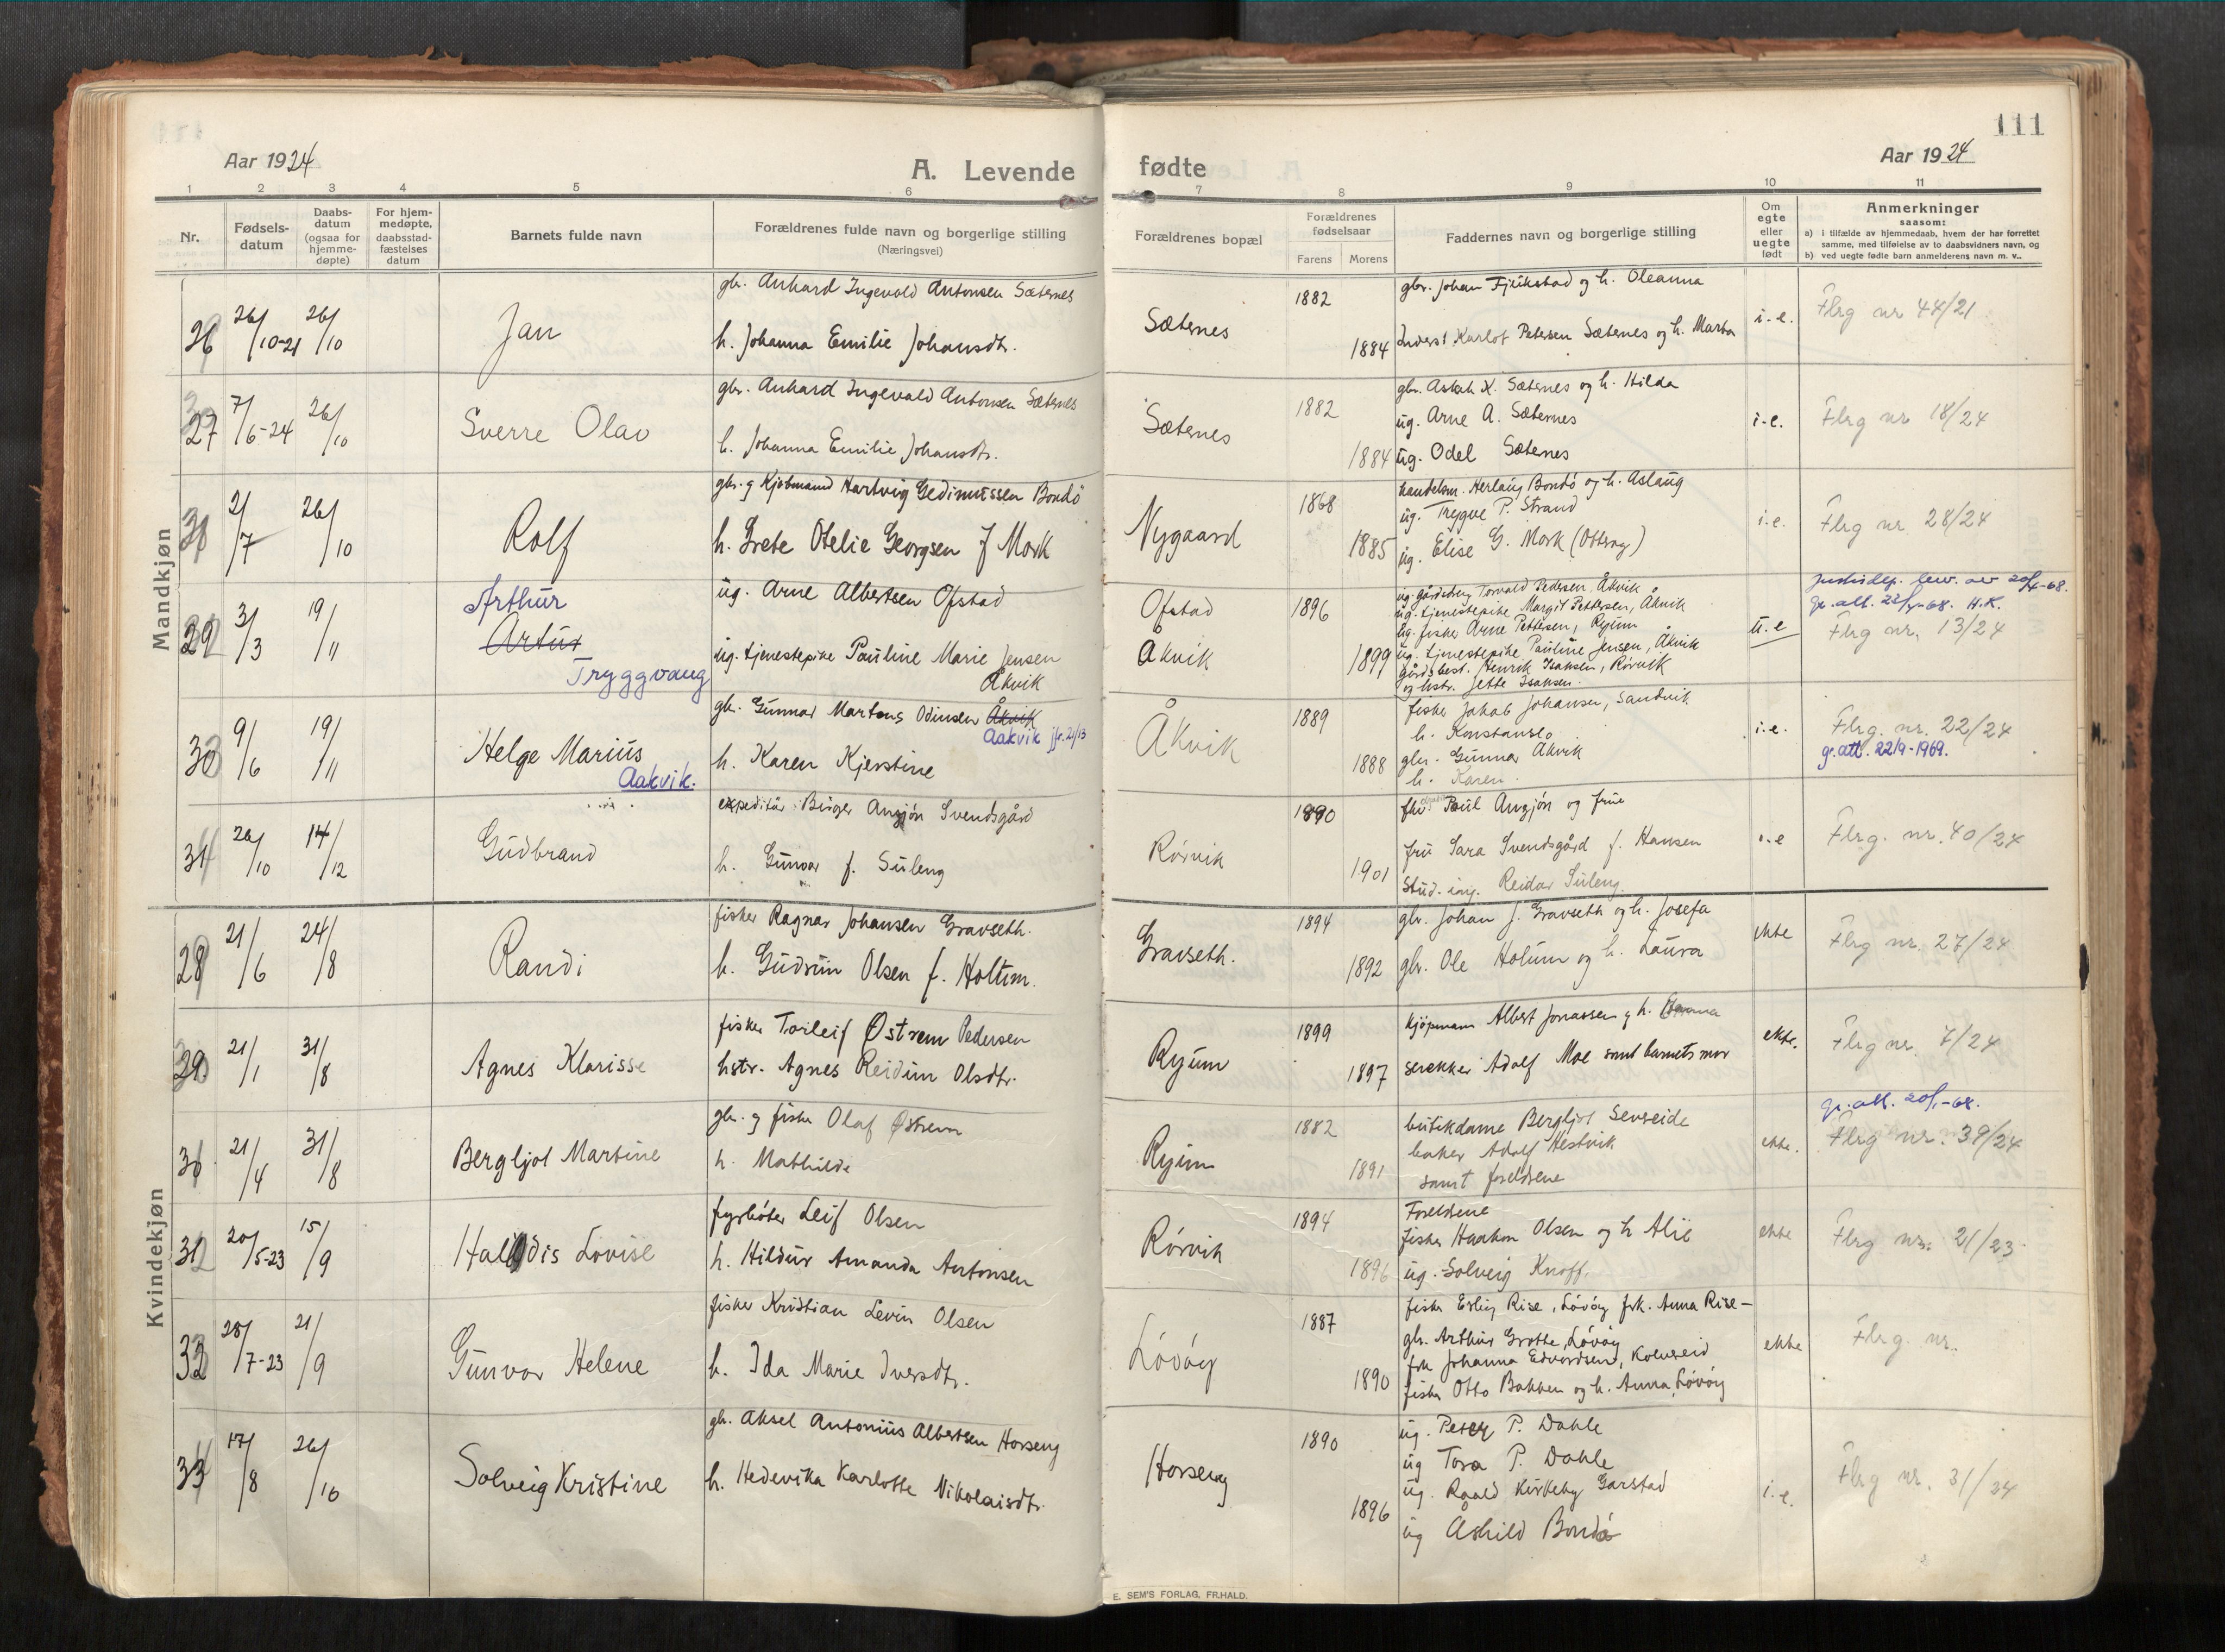 111
Aar 1924
A. Levende
fødte
Aar 1924
1 2 3 4 5 6 7 8 9 10 11
Nr.
Fødsels-
datum
Daabs-
datum
(ogsaa for
hjemme-
døpte)
For hjem-
medøpte,
daabsstad-
fæstelses
datum
Barnets fulde navn
Forældrenes fulde navn og borgerlige stilling
(Næringsvei)
Forældrenes bopæl
Forældrenes
fødselsaar
Farens Morens
Faddernes navn og borgerlige stilling
Om
egte
eller
uegte
født
Anmerkninger
saasom:
a) i tilfælde av hjemmedaab, hvem der har forrettet
samme, med tilføielse av to daabsvidners navn, og
b) ved uegte fødte barn anmelderens navn m. v..
Mandkjøn
26 26/10-21 26/10
Jan
gbr. Anhard Ingevald Antonsen Sæternes
h. Johanna Emilie Johansdtr.
Sæternes
1882
1884
gbr. Johan Fjukstad og h. Oleanna
Karlot Petersen Sæternes og h. Marta
i.e.
Flrg nr 44/21
27 7/6-24 26/10
Sverre Olav
gbr. Anhard Ingevald Antonsen Sæternes
h. Johanna Emilie Johansdtr.
Sæternes
1882
1884
gbr. Aslak K. Sæternes og h. Hilda
ug. Arne A. Sæternes
ug. Odel Sæternes
i.e.
Flrg nr 18/24
2/7 26/10
Rolf
gbr. og Kjøbmand Hartvig Gedinussen Bondø
h. Grete Otelie Georgsen f Mork
Nygaard
1868
1885
handelsm. Herlaug Bondø og h. Aslaug
ug. Trygve P. Strand
ug. Elise G. Mork (Ottersøy)
i.e.
Flrg nr 28/24
29 3/3 19/11
Arthur
Artur
Tryggvaug
ug. Arne Albertsen Ofstad
ug. tjenestepike Pauline Marie Jensen
Åkvik
Ofstad
Åkvik
1896
1899
ug. gårdsbrug Torvald Pedersen Åkvik
ug. tjenestepike Margit Pettersen, Åkvik
ug. fisker Arne Pettersen, Ryum
ug. tjenestepike Pauline Jensen, Åkvik
gårdsbest. Henrik Isaksen, Rørvik
og hstr. Jette Isaksen.
u.e
Justisdep. bev. av 20/4-68.
gr. att. 22/4-68. H.K.
Flrg nr. 13/24
30 9/6 19/11
Helge Marius
Aakvik.
gbr. Gunnar Martens Odinsen Åkvik
Aakvik jfr. 21/13
h. Karen Kjerstine
Åkvik
1889
1888
fisker Jakob Johansen, Sandvik.
h. Konstanse
gbr. Gunnar Åkvik
h. Karen.
i.e.
Flrg. nr. 22/24
gr. att. 22/9-1969.
31 26/10 14/12
Gudbrand
expeditør Birger Angjón Svendsgård
h. Gunvor f. Suleng
Rørvik
1890
1901
Paul Angjón og frue
fru Sara Svendsgård f. Hansen
stud. ing. Reidar Suleng.
i.e
Flrg. nr. 40/24
Kvindekjøn
28 21/6 24/8
Randi
fisker Ragnar Johansen Gravseth.
h. Gudrun Olsen f. Holtum.
Gravseth.
1894
1892
gbr. Johan J. Gravseth og h. Josefa
gbr. Ole Holum og h. Laura
ekte
Flrg nr. 27/24
29 21/1 31/8
Agnes Klarisse
fisker Torleif Østrem Pedersen
hstr. Agnes Reidun Olsdtr.
Ryum
1899
1897
kjøpmann Albert Jonassen og h. Hanna
serekker Adolf Moe samt barnets mor
ekte.
Flrg nr. 7/24
30 21/4 31/8
Bergljot Martine
gbr. og fisker Olaf Østrem
h. Mathilde
Ryum
1882
1891
butikdame Bergljot Sevreide
baker Adolf Hestvik
samt foreldrene
ekte.
gr. att. 20/1-68.
Flrg nr. 39/24
31 20/5-23 15/9
Halldis Lovise
fyrbøter Leif Olsen
h. Hildur Amanda Antonsen
Rørvik
1894
1896
Foreldrene
fisker Haakon Olsen og h Alie
ug. Solveig Knoff.
ekte
Flrg nr. 21/23
32 28/7-23 21/9
Gunvor Helene
fisker Kristian Levin Olsen
h. Ida Marie Iversdtr.
Løvøy
1887
1890
fisker Erling Rise, Løvøy frk. Anna Rise -
gbr. Arthur Grotte, Løvøy
frk Johanna Edvardsen, Kolvereid
fisker Otto Bakken og h. Anna, Løvøy
ekte
Flrg. nr.
33 17/8 26/10
Solveig Kristine
gbr. Aksel Antonius Albertsen Horseng
h. Hedevika Karlotte Nikolaisdtr.
Horseng
1890
1896
ug. Peter P. Dahle
ug Tora P. Dahle
ug. Roald Kirkeby Garstad
ug Åshild Bondø
i.e.
Flrg nr. 31/24
E. SEM'S FORLAG, FR.HALD.